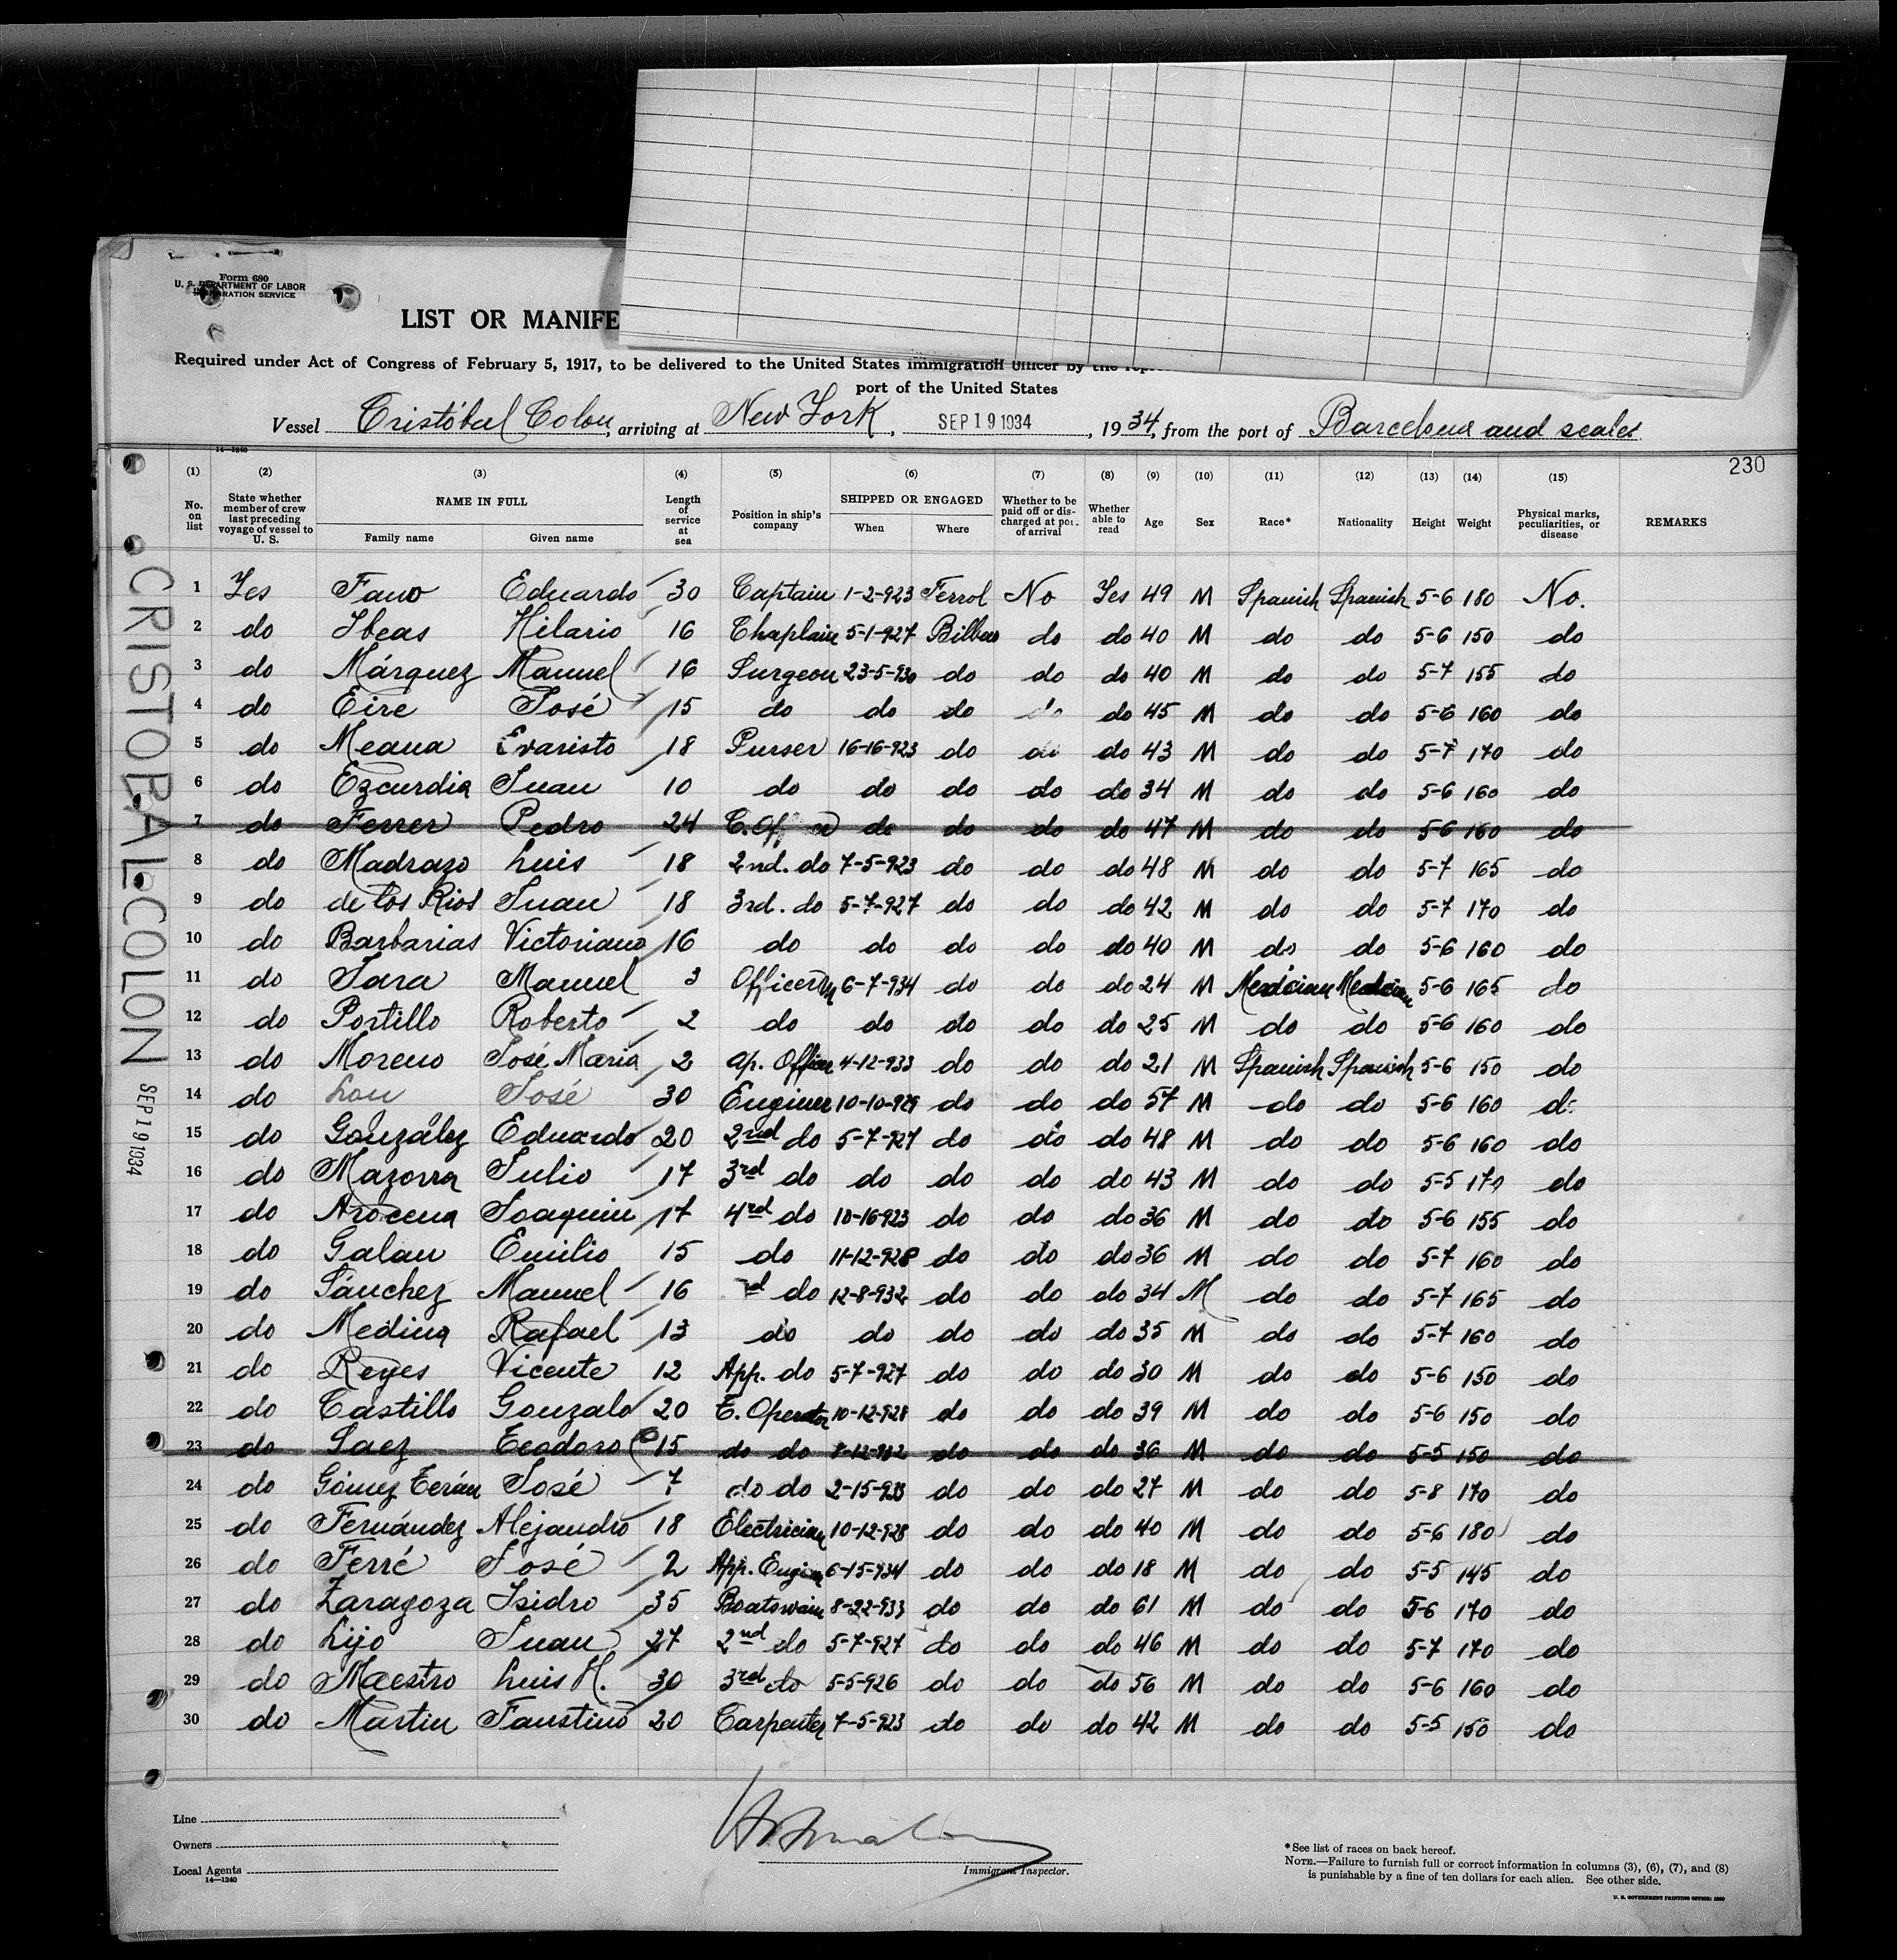 Form 680
U. S. DEPARTMENT OF LABOR
IMMIGRATION SERVICE
LIST OR MANIFE
Required under Act of Congress of February 5, 1917, to be delivered to the United States immigration officer by the repr
port of the United States
Vessel Cristóbal Colon, arriving at New York, SEP 19 1934, 1934, from the port of Barcelona and scales
14—1240
230
(1) (2) (3) (4) (5) (6) (7) (8) (9) (10) (11) (12) (13) (14) (15)
No. on list State whether member of crew last preceding voyage of vessel to U. S. NAME IN FULL Family name Given name Length of service at sea Position in ship's company SHIPPED OR ENGAGED When Where Whether to be paid off or discharged at port of arrival Whether able to read Age Sex Race* Nationality Height Weight Physical marks, peculiarities, or disease REMARKS
CRISTOBAL COLON
SEP 19 1934
1 Yes Fano Eduardo 30 Captain 1-2-923 Ferrol No Yes 49 M Spanish Spanish 5-6 180 No.
2 do Ibeas Hilario 16 Chaplain 5-1-927 Bilbao do do 40 M do do 5-6 150 do
3 do Márquez Manuel 16 Surgeon 23-5-930 do do do 40 M do do 5-7 155 do
4 do Eire José 15 do do do do do 45 M do do 5-6 160 do
5 do Meana Evaristo 18 Purser 16-16-923 do do do 43 M do do 5-7 170 do
6 do Ezcurdia Juan 10 do do do do do 34 M do do 5-6 160 do
7 do Ferrer Pedro 24 do do do do 47 M do do 5-6 160 do
8 do Madrazo Luis 18 2nd. do 7-5-923 do do do 48 M do do 5-7 165 do
9 do de los Rios Juan 18 3rd. do 5-7-927 do do do 42 M do do 5-7 170 do
10 do Barbarias Victoriano 16 do do do do do 40 M do do 5-6 160 do
11 do Jara Manuel 3 6-7-934 do do do 24 M Mexician 5-6 165 do
12 do Portillo Roberto 2 do do do do do 25 M do do 5-6 160 do
13 do Moreno José Maria 2 ap. Officer 4-12-933 do do do 21 M Spanish Spanish 5-6 150 do
14 do Lou José 30 Enginer 10-10-929 do do do 57 M do do 5-6 160 do
15 do González Eduardo 20 2nd do 5-7-927 do do do 48 M do do 5-6 160 do
16 do Mazorra Julio 17 3rd do do do do do 43 M do do 5-5 170 do
17 do Arocena Joaquin 17 4rd do 10-16-923 do do do 36 M do do 5-6 155 do
18 do Galan Emilio 15 do 11-12-928 do do do 36 M do do 5-7 160 do
19 do Sánchez Manuel 16 rd do 12-8-932 do do do 34 M do do 5-7 165 do
20 do Medina Rafael 13 do do do do do 35 M do do 5-7 160 do
21 do Reyes Vicente 12 App. do 5-7-927 do do do 30 M do do 5-6 150 do
22 do Castillo Gonzalo 20 T. Operator 10-12-928 do do do 39 M do do 5-6 150 do
23 do Saez Teodoro 15 do do 8-12-932 do do do 36 M do do 5-5 150 do
24 do Gómez Terán José 7 do do 2-15-933 do do do 27 M do do 5-8 170 do
25 do Fernández Alejandro 18 Electrician 10-12-928 do do do 40 M do do 5-6 180 do
26 do Ferré José 2 App. Engin 6-15-934 do do do 18 M do do 5-5 145 do
27 do Zaragoza Isidro 35 Boatswain 8-22-933 do do do 61 M do do 5-6 170 do
28 do Lijo Juan 27 2nd do 5-7-927 do do do 46 M do do 5-7 170 do
29 do Maestro Luis H. 30 3rd do 5-5-926 do do do 56 M do do 5-6 160 do
30 do Martin Faustino 20 Carpenter 7-5-923 do do do 42 M do do 5-5 150 do
Line
Owners
Local Agents
14—1240
Immigrant Inspector.
*See list of races on back hereof.
NOTE.—Failure to furnish full or correct information in columns (3), (6), (7), and (8)
is punishable by a fine of ten dollars for each alien. See other side.
U. S. GOVERNMENT PRINTING OFFICE: